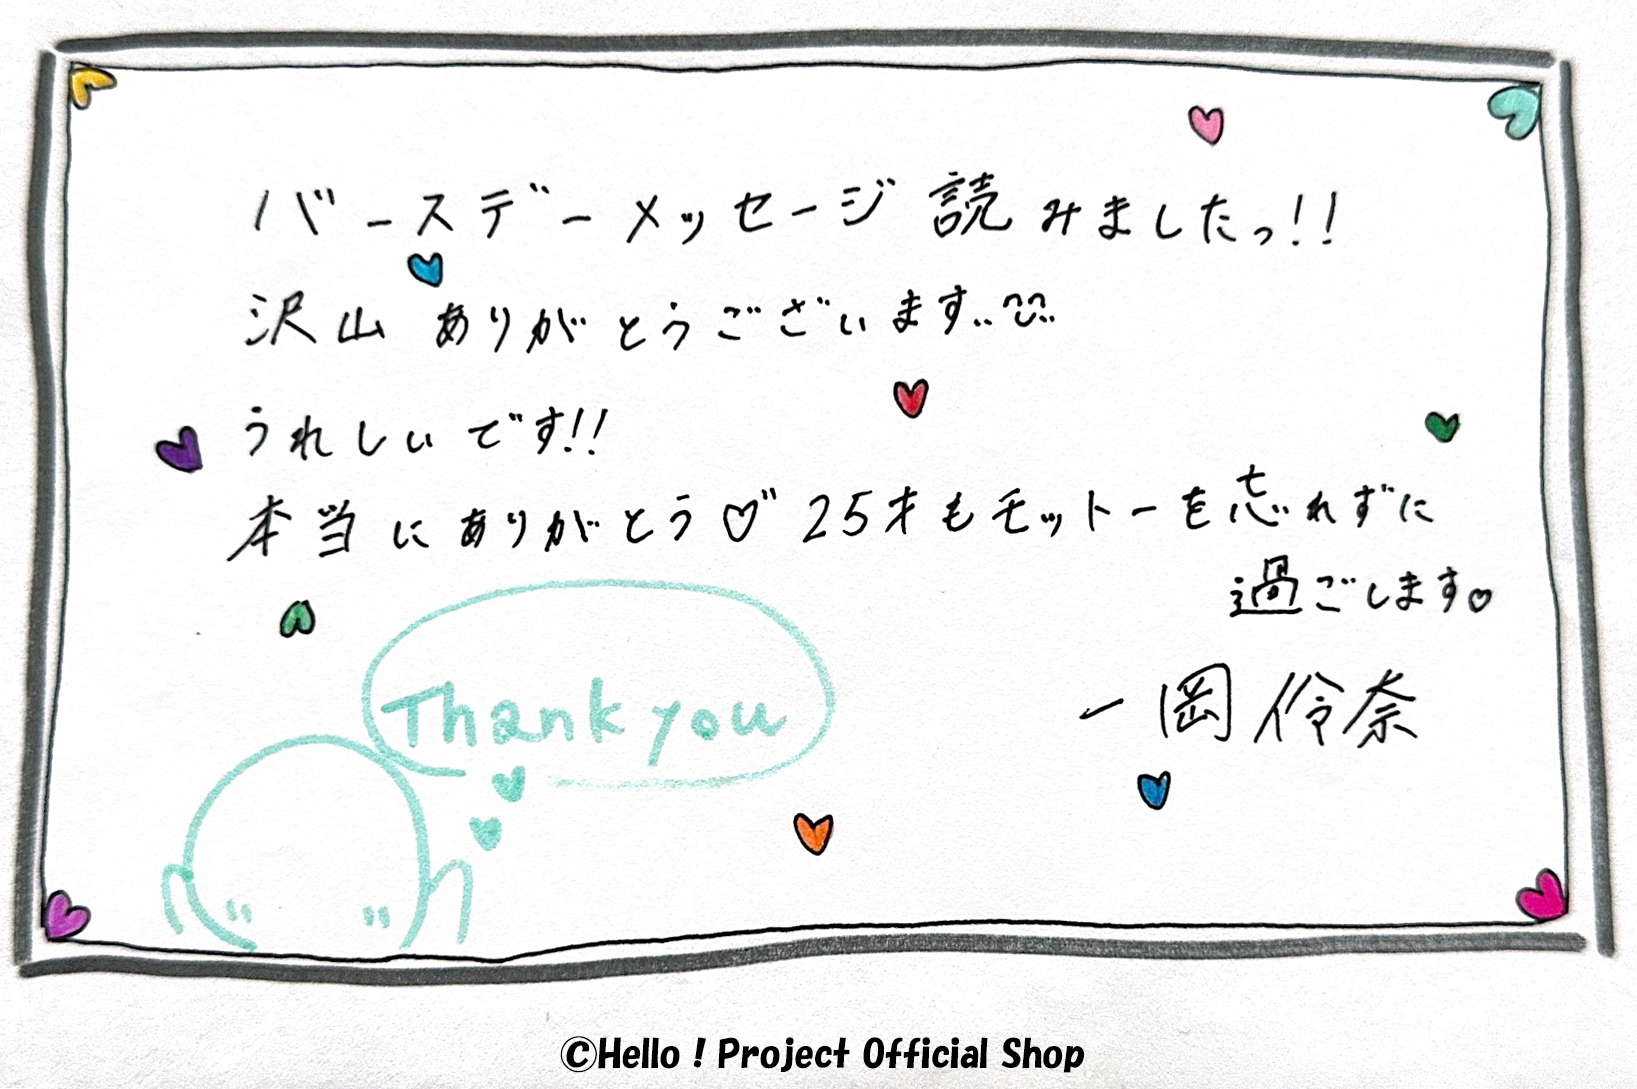 バースデーメッセージ読みましたっ!!
沢山ありがとうございます..
うれしいです!!
本当にありがとう♡" 25才もモットーを忘れずに
過ごします♡
一岡伶奈
Thank you
©Hello ! Project Official Shop